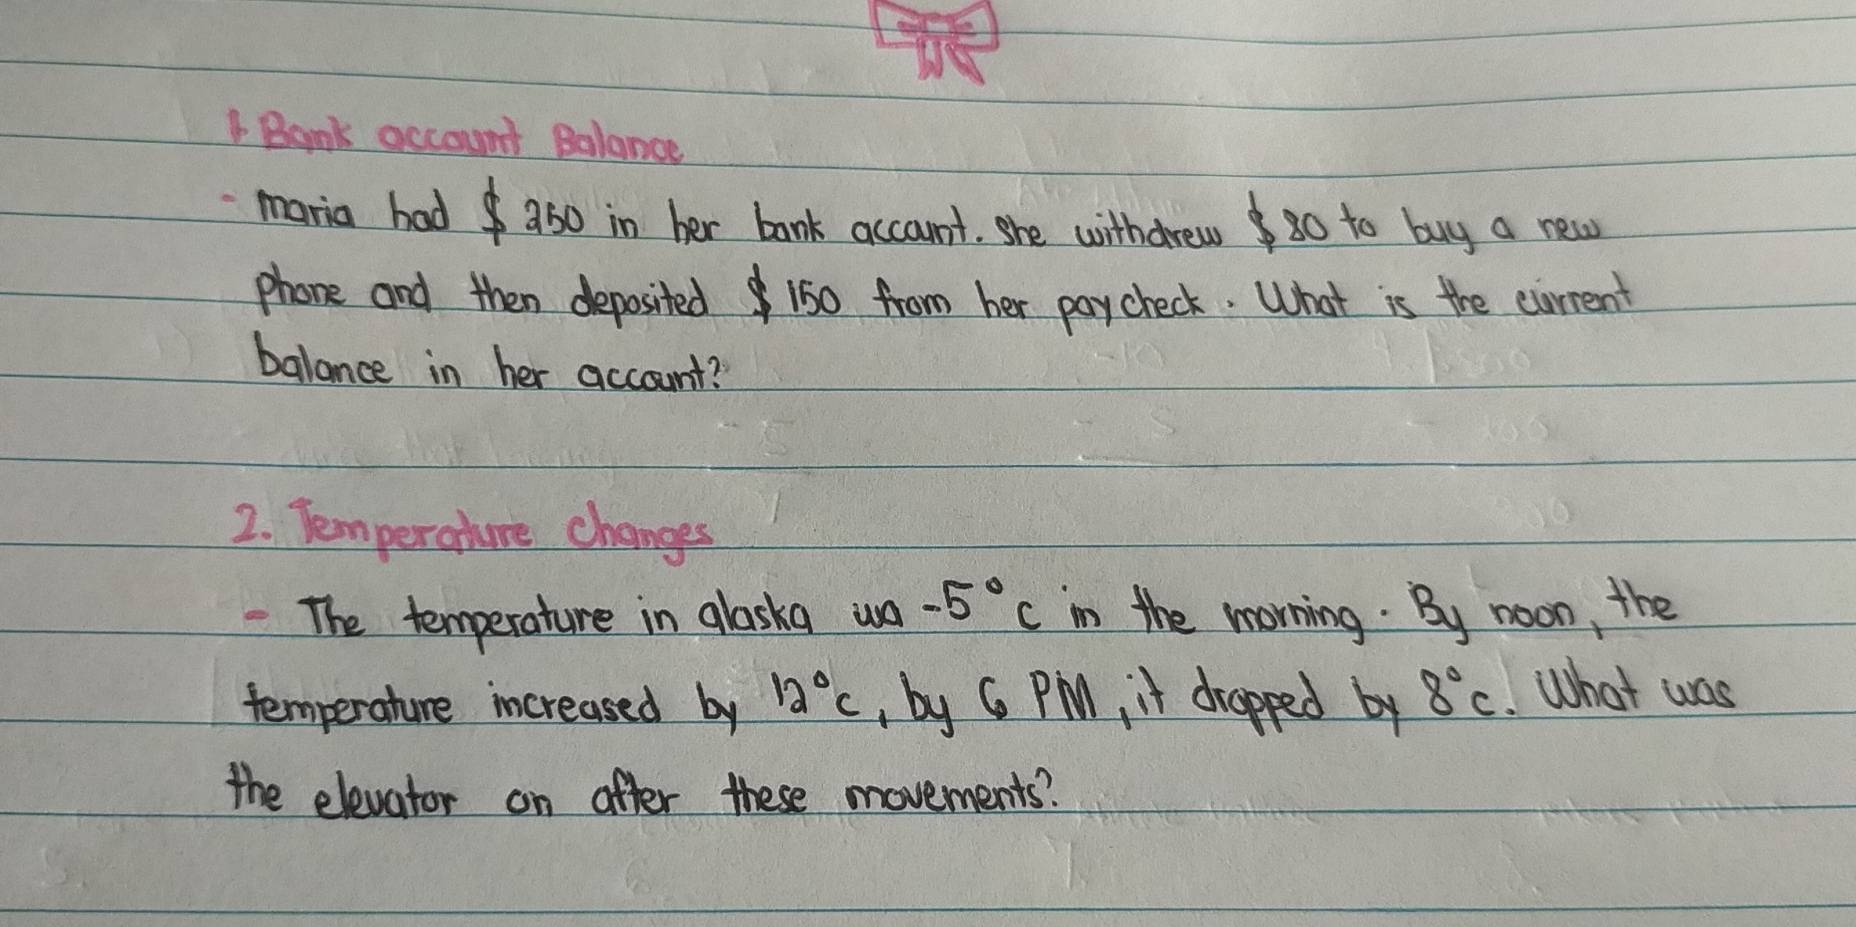 1. Bank account Balance
- Maria had $ 250 in her bank account. She withdrew $ 80 to buy a new
phone and then deposited $ 150 from her paycheck. What is the current
balance in her account?
2. Temperature Changes
- The temperature in alaska wa -5°c in the morning. By noon, the
temperature increased by 12°c, by 6 PM, it dropped by 8°c. What was
the elevator on after these movements?